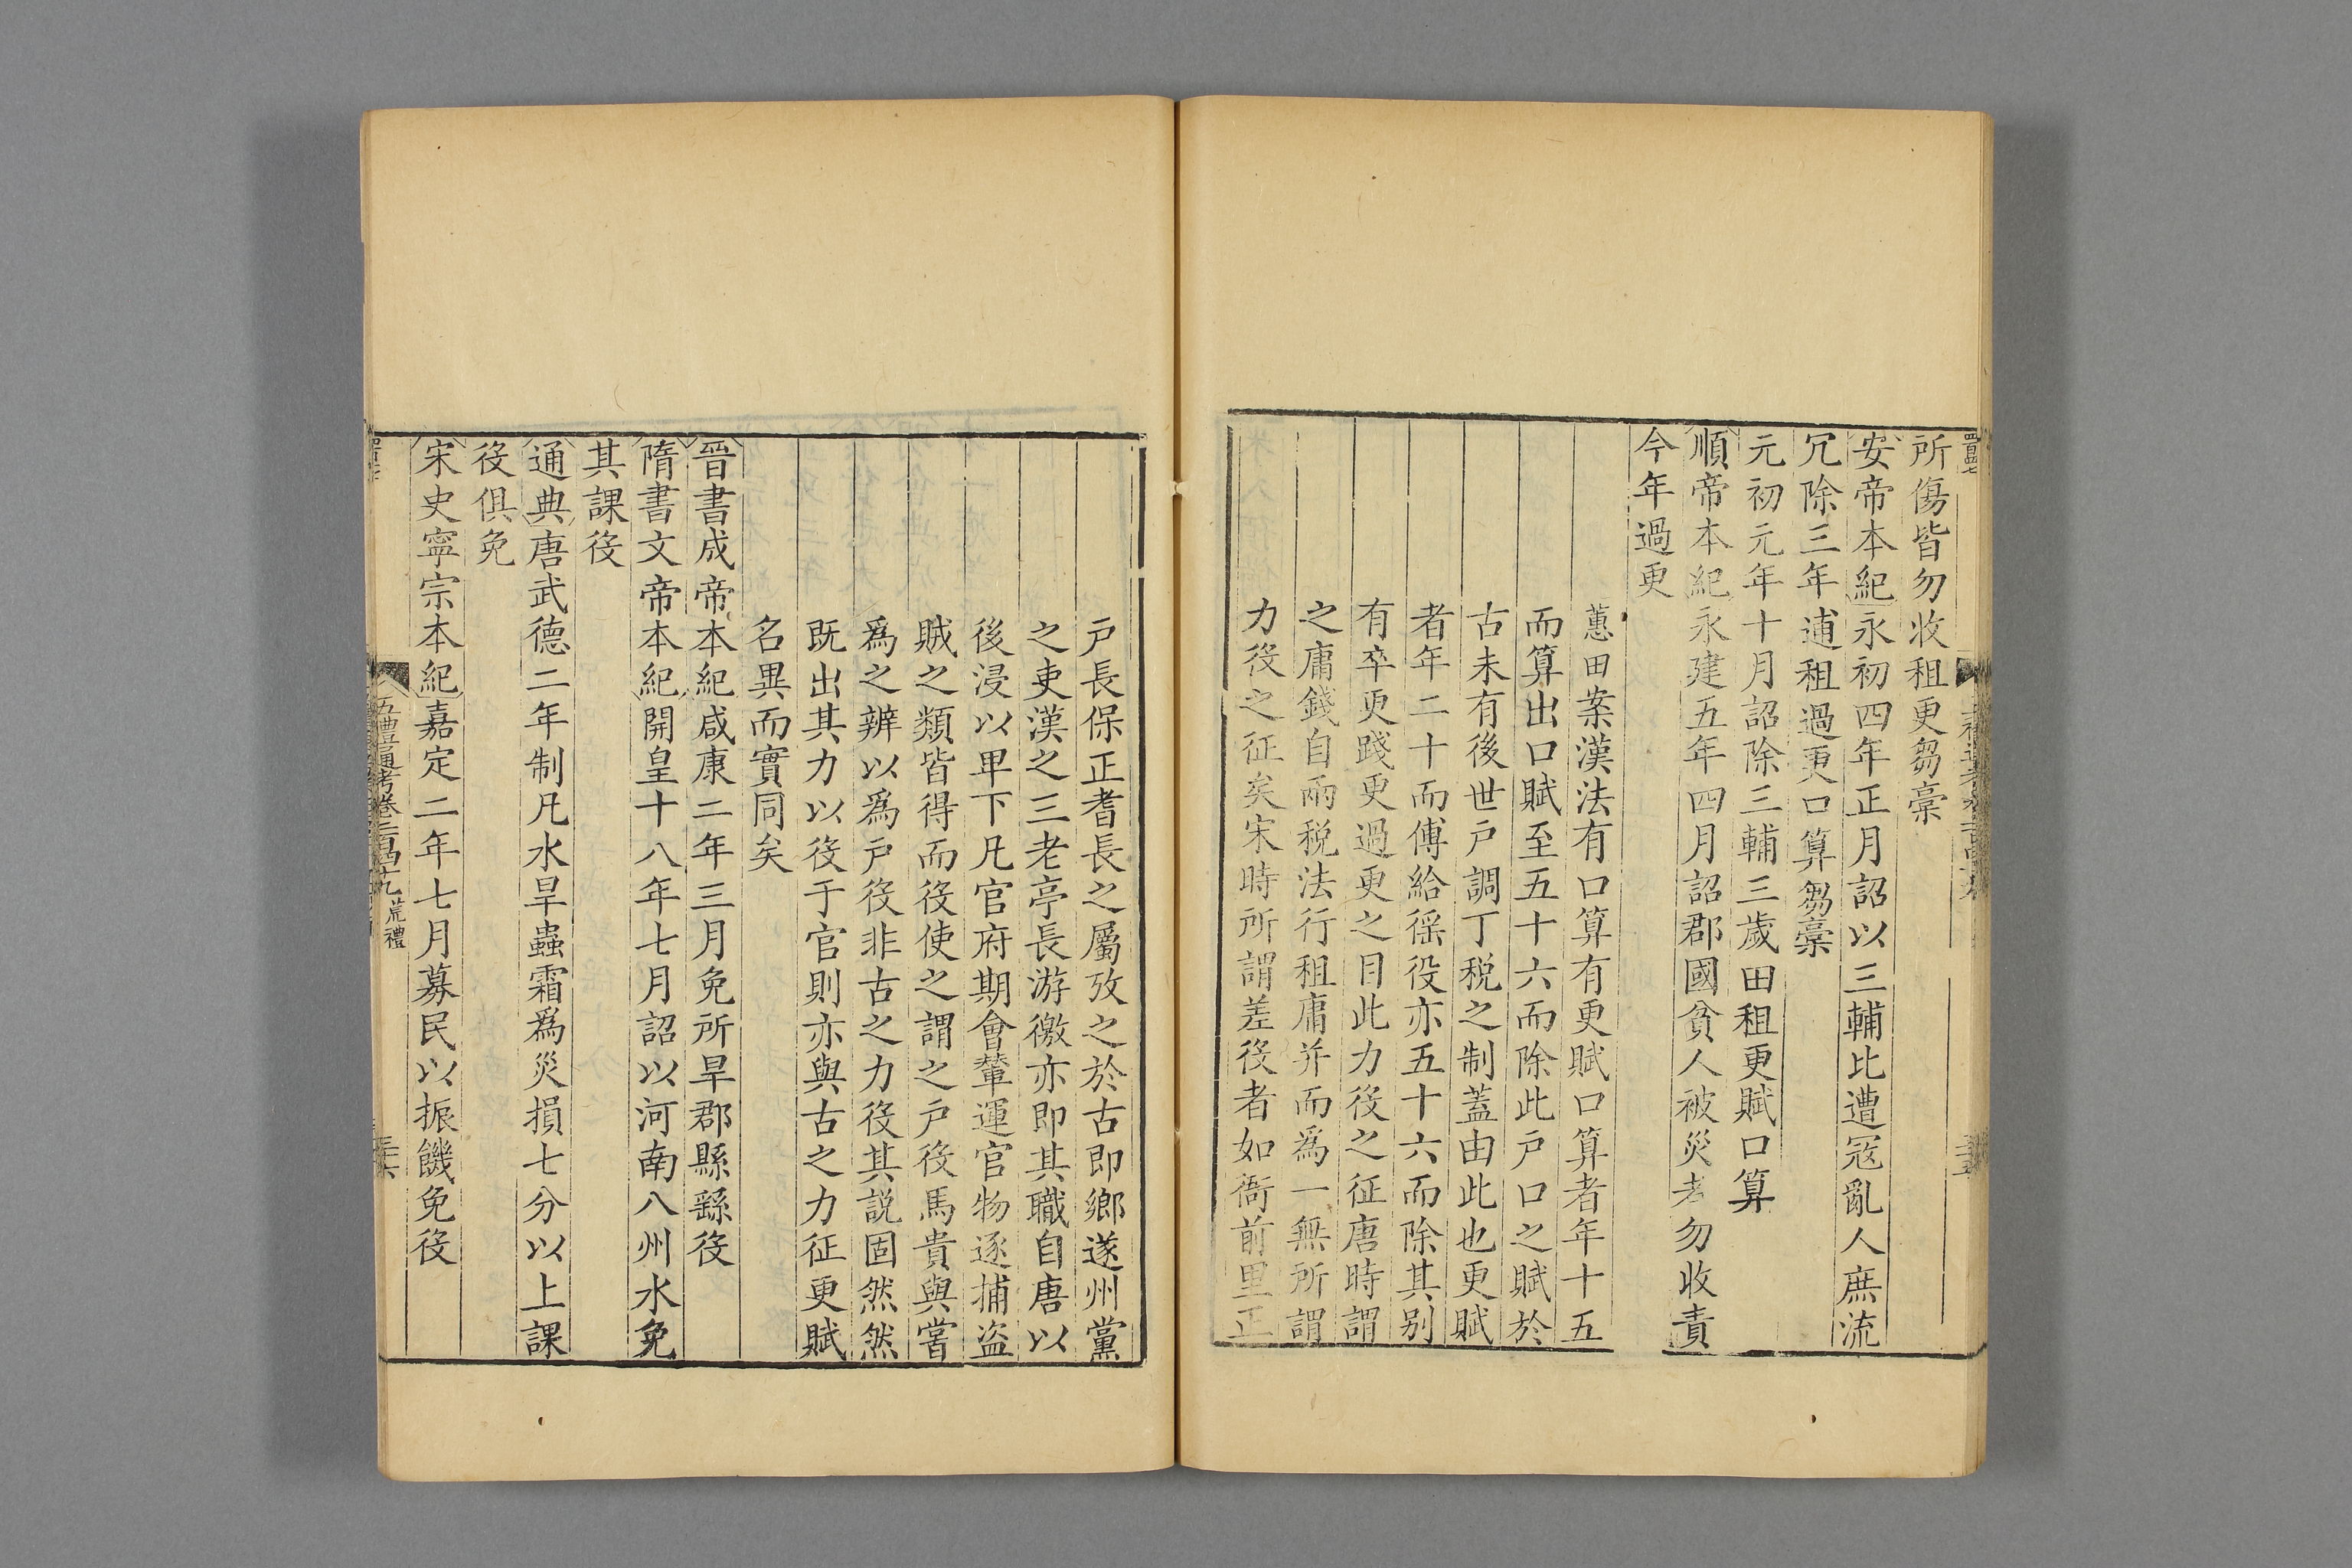 所傷皆勿收租更芻稾
安帝本紀永初四年正月詔以三輔比遭寇亂人庶流
冗除三年逋租過更口算芻稾
元初元年十月詔除三輔三歲田租更賦口算
順帝本紀永建五年四月詔郡國貧人被災者勿收責
今年過更
蕙田案漢法有口算有更賦口算者年十五
而算出口賦至五十六而除此户口之賦於
古未有後世户調丁税之制蓋由此也更賦
者年二十而傅給徭役亦五十六而除其别
有卒更踐更過更之目此力役之征唐時謂
之庸錢自兩税法行租庸并而爲一無所謂
力役之征矣宋時所謂差役者如衙前里正
户長保正耆長之屬攷之於古即鄉遂州黨
之吏漢之三老亭長游徼亦即其職自唐以
後浸以卑下凡官府期會輦運官物逐捕盜
賊之類皆得而役使之謂之户役馬貴與嘗
爲之辨以爲户役非古之力役其説固然然
既出其力以役于官則亦與古之力征更賦
名異而實同矣
晉書成帝本紀咸康二年三月免所旱郡縣繇役
隋書文帝本紀開皇十八年七月詔以河南八州水免
其課役
通典唐武德二年制凡水旱蟲霜爲災損七分以上課
役俱免
宋史寧宗本紀嘉定二年七月募民以振饑免役
五禮通考卷二百四十九 荒禮
三十六